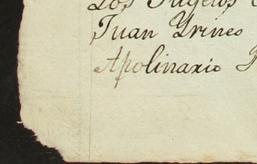 Los Sugetos
Juan Yrineo
Apolinario